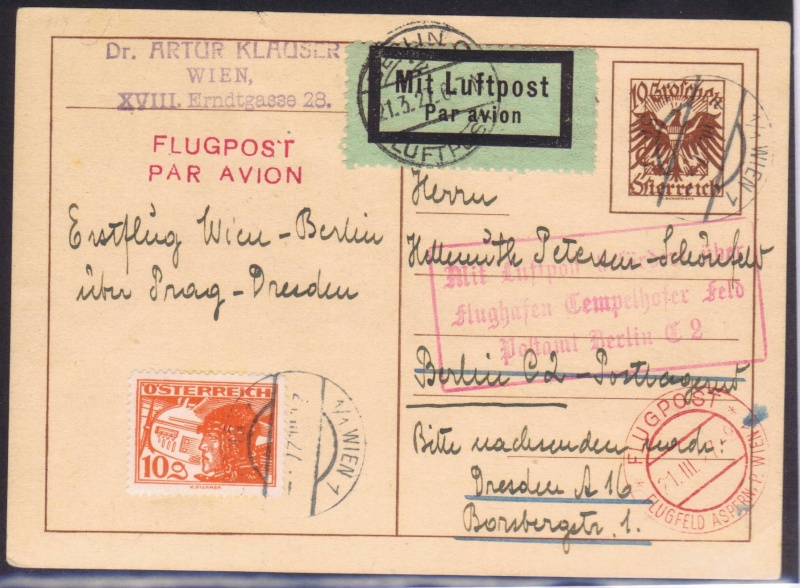 Dr. ARTUR KLAUSER
WIEN,
XVIII. Erndtgasse 28.
FLUGPOST
PAR AVION
Erstflug Wien-Berlin
über Prag-Dresden
BERLIN C
21.3.
LUFTPOST
Mit Luftpost
Par avion
10 Groschen
Österreich
WIEN 1
Herrn
Hellmuth Petersen-Schönfeld
Mit Luftpost befördert über
Flughafen Tempelhofer Feld
Postamt Berlin C 2
Berlin C2-Postlagernd
Bitte nachsenden nach:
Dresden A 16
Borsbergstr. 1.
ÖSTERREICH
10 g
1/1 WIEN 1
FLUGPOST
21.III.
FLUGFELD ASPERN, P. WIEN